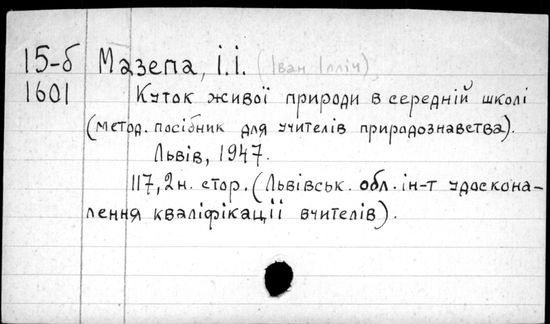 15-б Мазепа, І.І. (Іван Ілліч)
1601 Куток живої природи в середній школі
(метод. посібник для учителів природознавства).
Львів, 1947.
117, 2 н. стор. (Львівськ. обл. ін-т удоскона-
лення кваліфікації вчителів).